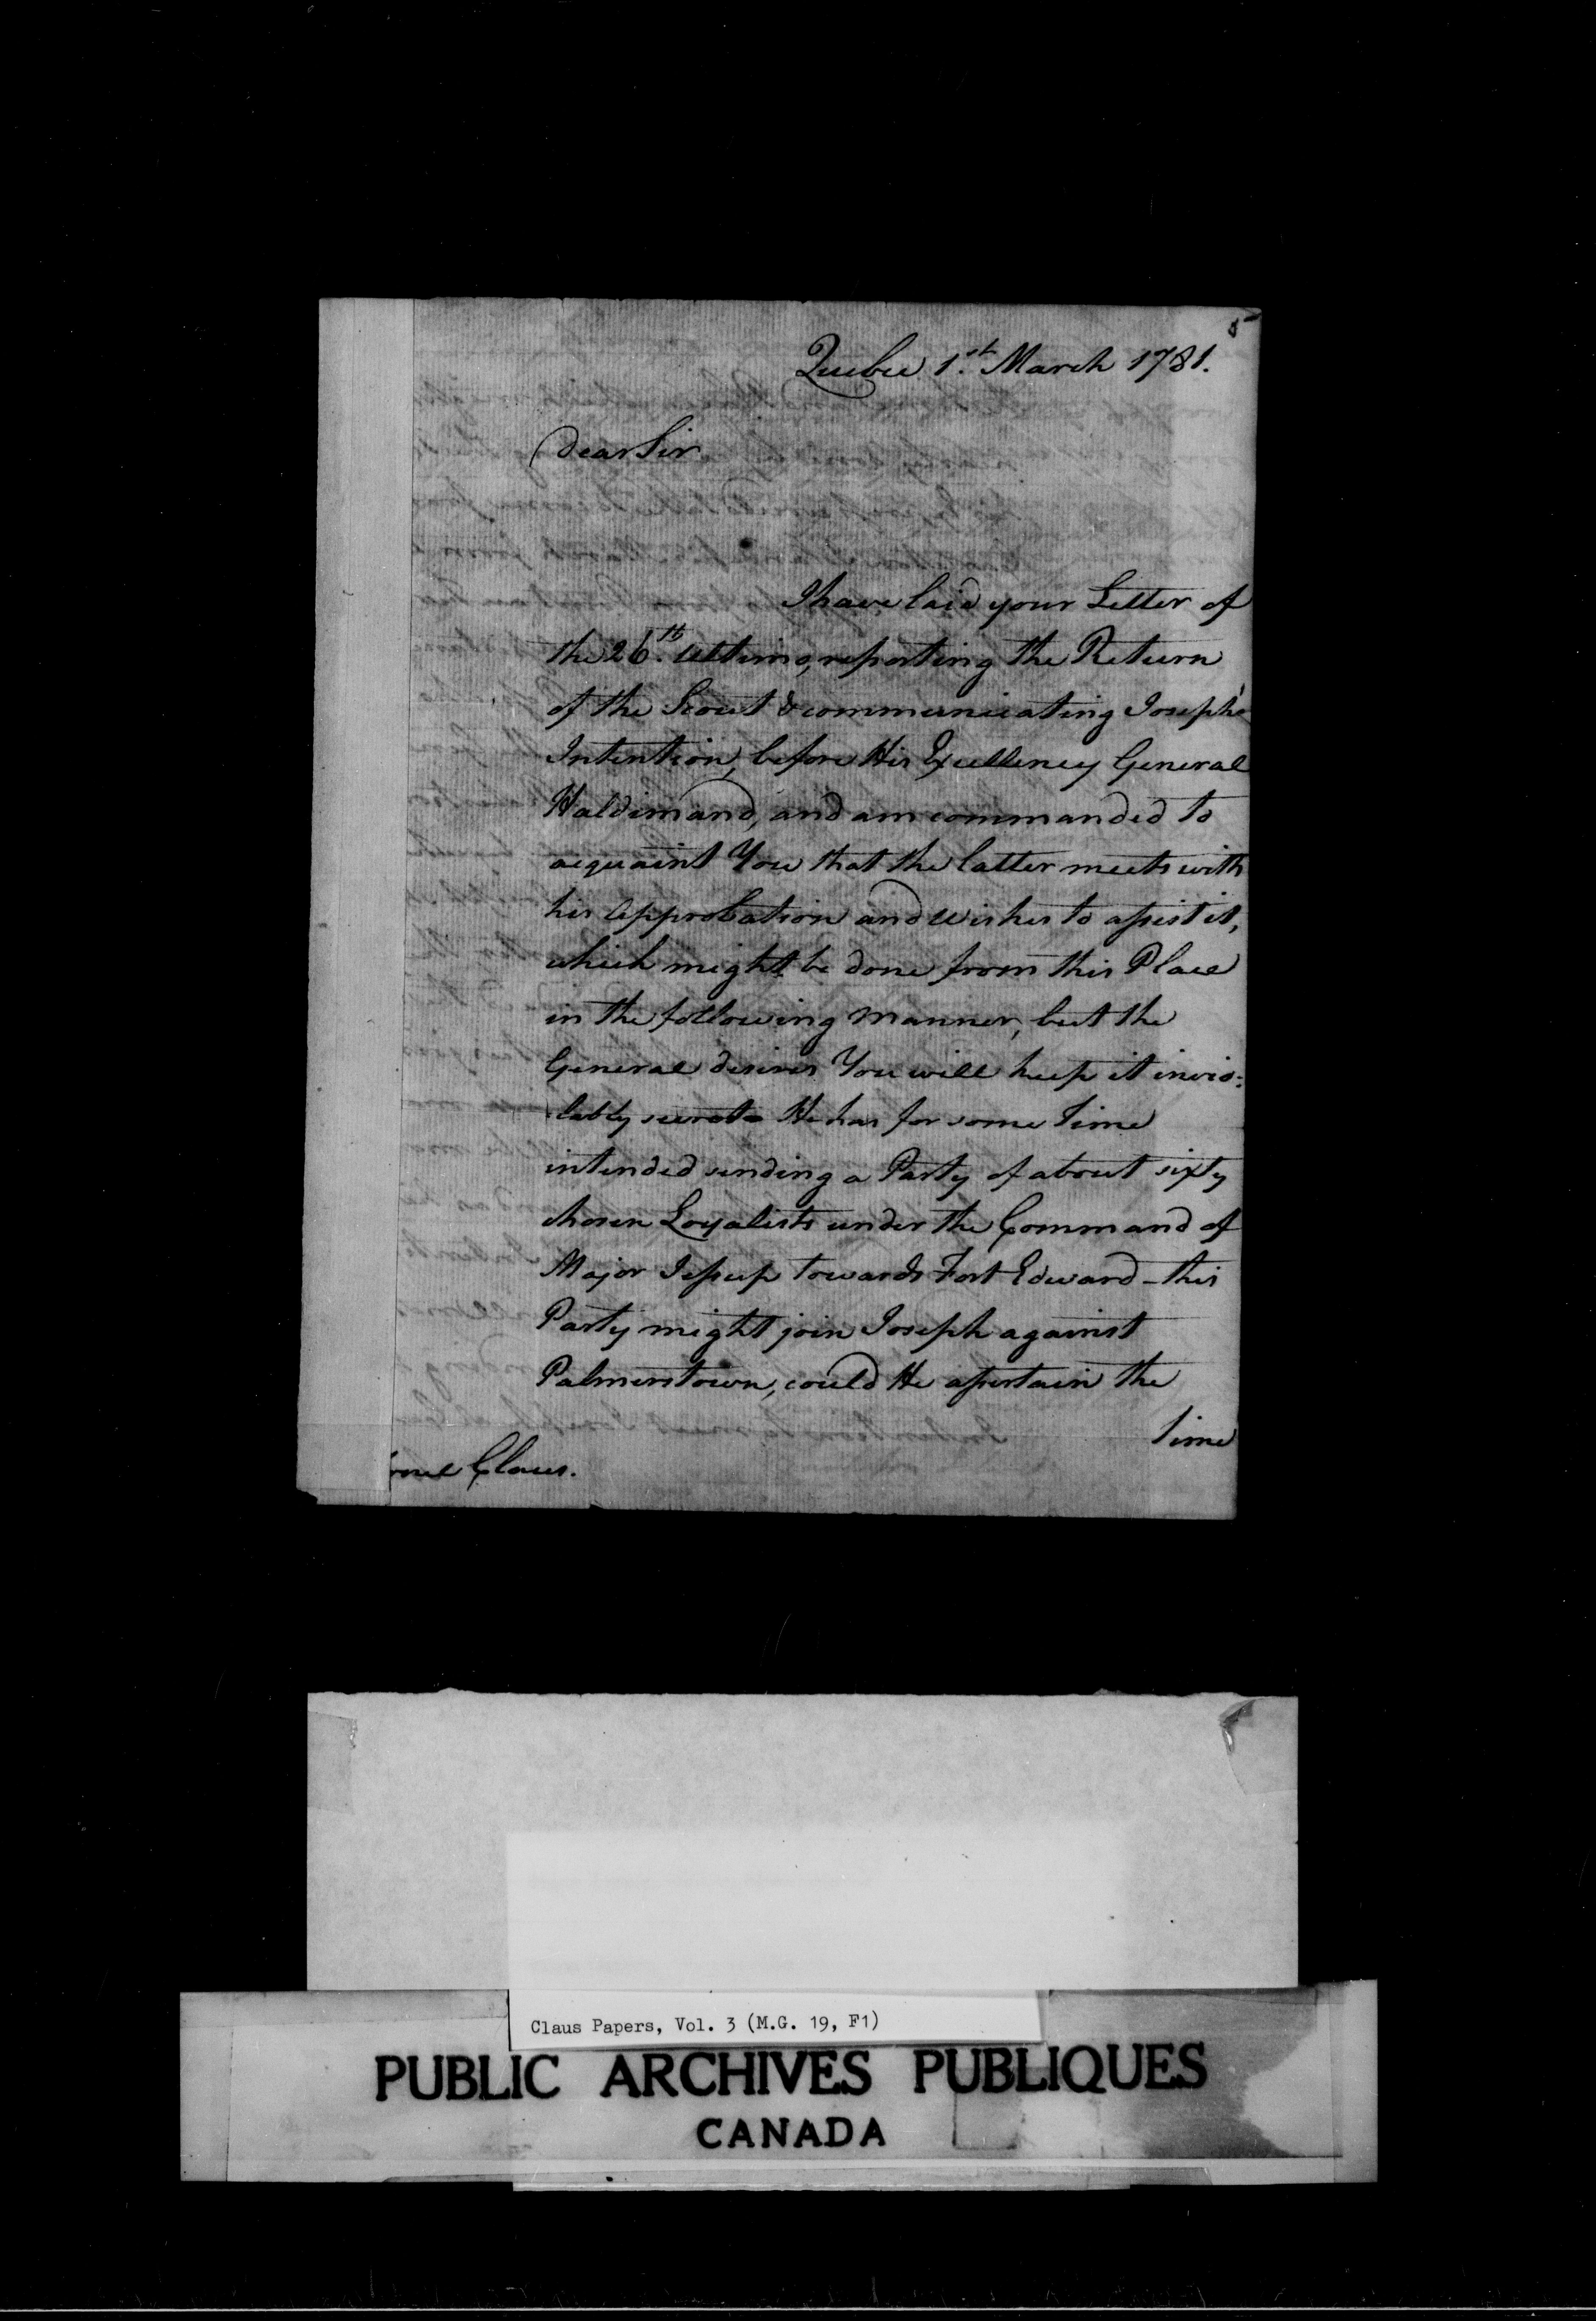 5
Quebec 1.st March 1781.
Dear Sir
I have laid your Letter of
the 26.th Ultimo, reporting the Return
of the Scout & communicating Joseph's
Intention, before His Excellency General
Haldimand, and am commanded to
acquaint You that the latter meets with
his Approbation and wishes to assist it,
which might be done from this Place
in the following manner, but the
General desires You will keep it invio:
lably secret - He has for some Time
intended sending a Party of about sixty
chosen Loyalists under the Command of
Major Jessup towards Fort Edward - this
Party might join Joseph against
Palmerstown, could He assertain the
Time
onel Claus.
Claus Papers, Vol. 3 (M.G. 19, F1)
PUBLIC ARCHIVES PUBLIQUES
CANADA